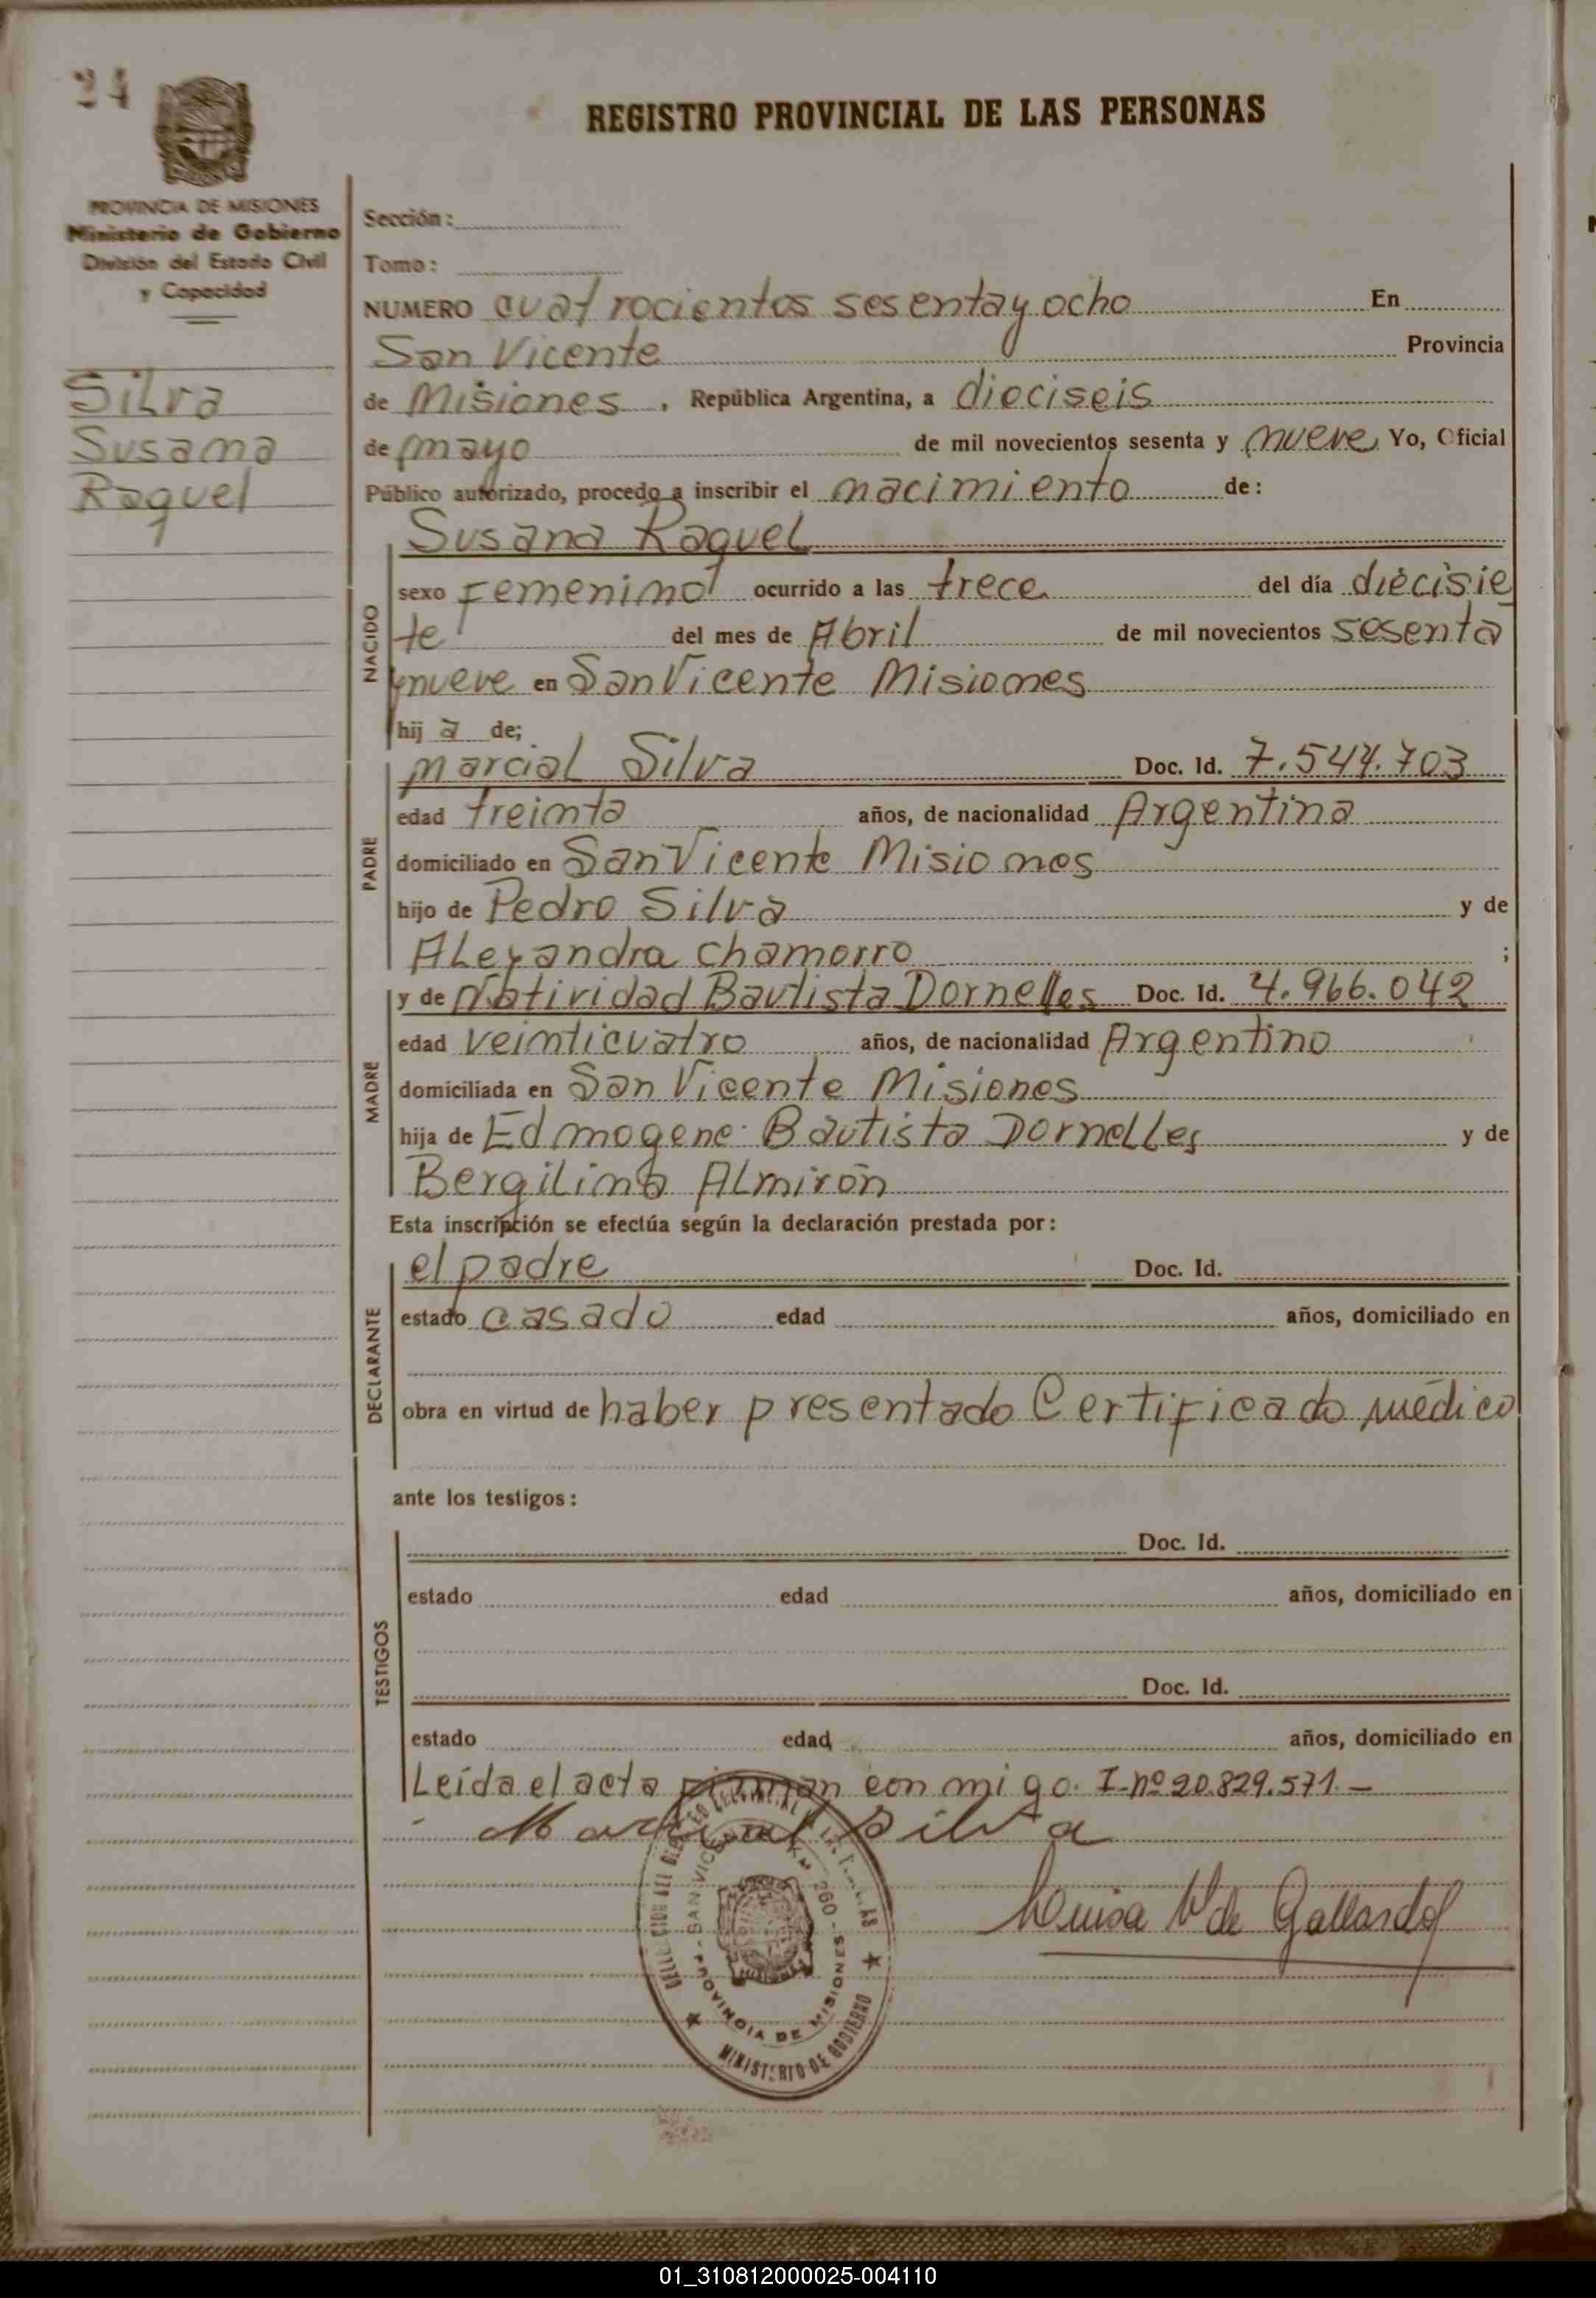 24
PROVINCIA DE MISIONES
Ministerio de Gobierno
División del Estado Civil
y Capacidad
Silva
Susana
Raquel
REGISTRO PROVINCIAL DE LAS PERSONAS
Sección:
Tomo:
NUMERO cuatrocientos sesenta y ocho En
San Vicente Provincia
de Misiones, República Argentina, a dieciseis
de mayo de mil novecientos sesenta y nueve Yo, Oficial
Público autorizado, procedo a inscribir el nacimiento de:
Susana Raquel
NACIDO
sexo Femenino ocurrido a las trece del día diecisie
te del mes de Abril de mil novecientos sesenta
y nueve en San Vicente Misiones
hij a de;
PADRE
Marcial Silva Doc. Id. 7.544.703
edad treinta años, de nacionalidad Argentina
domiciliado en San Vicente Misiones
hijo de Pedro Silva y de
Alexandra Chamorro ;
MADRE
y de Natividad Bautista Dornelles Doc. Id. 4.966.042
edad veinticuatro años, de nacionalidad Argentino
domiciliada en San Vicente Misiones
hija de Edmogene Bautista Dornelles y de
Bergilina Almirón
Esta inscripción se efectúa según la declaración prestada por:
DECLARANTE
el padre Doc. Id.
estado casado edad años, domiciliado en
obra en virtud de haber presentado Certificado médico
ante los testigos:
TESTIGOS
Doc. Id.
estado edad años, domiciliado en
Doc. Id.
estado edad años, domiciliado en
Leída el acta firman con migo. I-nº 20.829.571.—
Marcial Silva
Luisa V de Gallardo
SAN VICENTE
260
PROVINCIA DE MISIONES
MINISTERIO DE GOBIERNO
01_310812000025-004110